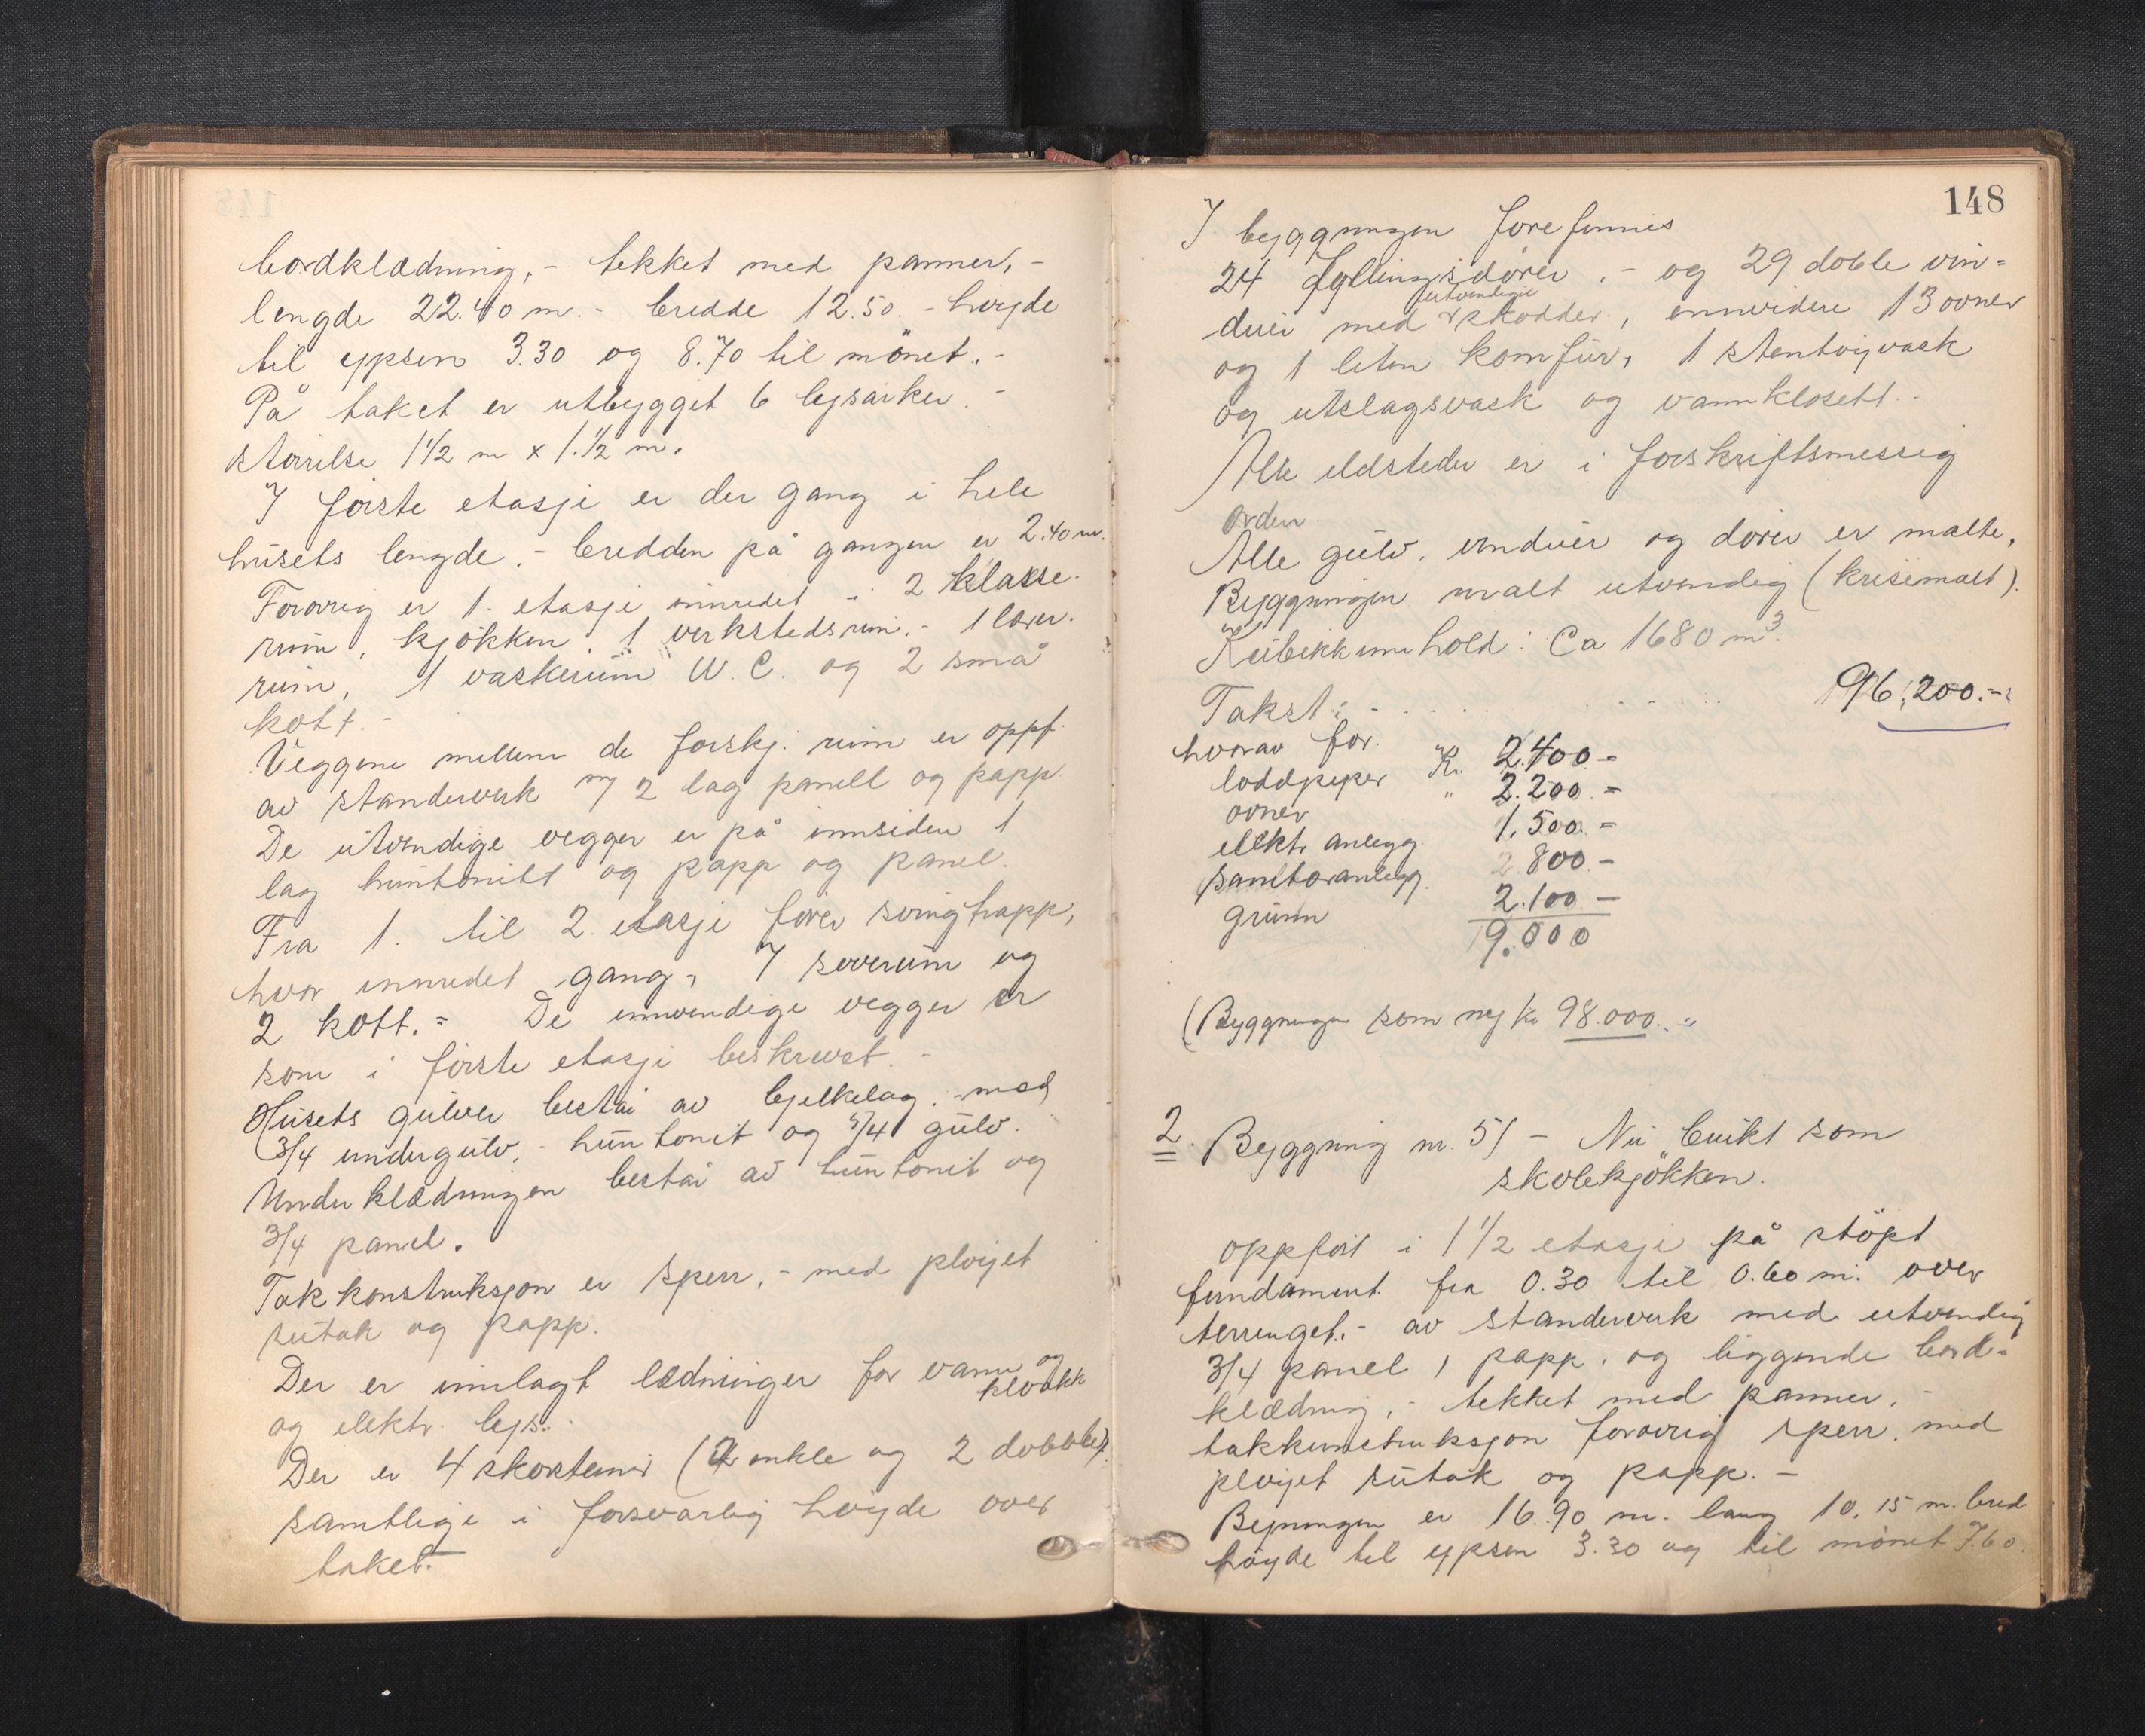 bordklædning, - tekket med panner, -
lengde 22.40 m. - bredde 12.50. - høyde
til gipsen 3.30 og 8.70 til mønet. -
På taket er utbygget 6 lysarker. -
størrelse 1 1/2 m x 1. 1/2 m.
I første etasje er der gang i hele
husets lengde. - bredden på gangen er 2.40 m.
Forøvrig er 1. etasje innredet - 2 klasse-
rum, kjøkken, 1 verkstedsrum. - 1 lærer-
rum, 1 vaskerum W.C. og 2 små
kott. -
Veggene mellem de forskj. rum er oppf.
av standerverk m/ 2 lag panell og papp
De utvendige vegger er på innsiden 1
lag huntonitt og papp og panel.
Fra 1. til 2. etasje fører svingtrapp,
hvor innredet gang, 7 soverum og
2 kott. = De innvendige vegger er
som i første etasje beskrevet. -
Husets gulver består av bjelkelag. med
3/4 undergulv, - huntonit og 5/4 gulv.
Underklædningen består av huntonit og
3/4 panel.
Takkonstruksjon er sperr, - med pløjet
sutak og papp.
Der er innlagt ledninger for vann og kloakk
og elektr. lys.
Der er 4 skorstener (2 enkle og 2 dobble).
samtlige i forsvarlig høyde over
taket.
148
I byggningen forefinnes
24 fyllingsdører. - og 29 doble vin=
duer med utvendige skodder, ennvidere 13 ovner
og 1 liten komfur, 1 stentøyvask
og utslagsvask og vannklosett. -
Alle ildsteder er i forskriftsmessig
orden.
Alle gulv, vinduer og dører er malte,
Byggningen malt utvendig (krisemalt).
Kubikkinnhold: Ca 1680 m3.
Takst: - . . . . . . . 96,200.-
hvorav for.
loddpiper Kr. 2.400 -
ovner " 2.200. =
elektr. anlegg 1,500. =
sanitæranlegg. 800. -
grunn 2.100 -
9.000
(Byggningen som ny kr 98.000. -
2. Byggning nr. 51 - Nu brukt som
skolekjøkken.
oppført i 1 1/2 etasje på støpt
fundament fra 0.30 til 0.60 m. over
terrenget. - av standerverk med utvendig
3/4 panel, papp, og liggende bord=
klædning, - tekket med panner. -
takkonstruksjon forøvrig sperr. med
pløjet sutak og papp. -
Bygningen er 16.90 m. lang 10.15 m. bred
høyde til gipsen 3.30 og til mønet 7.60.